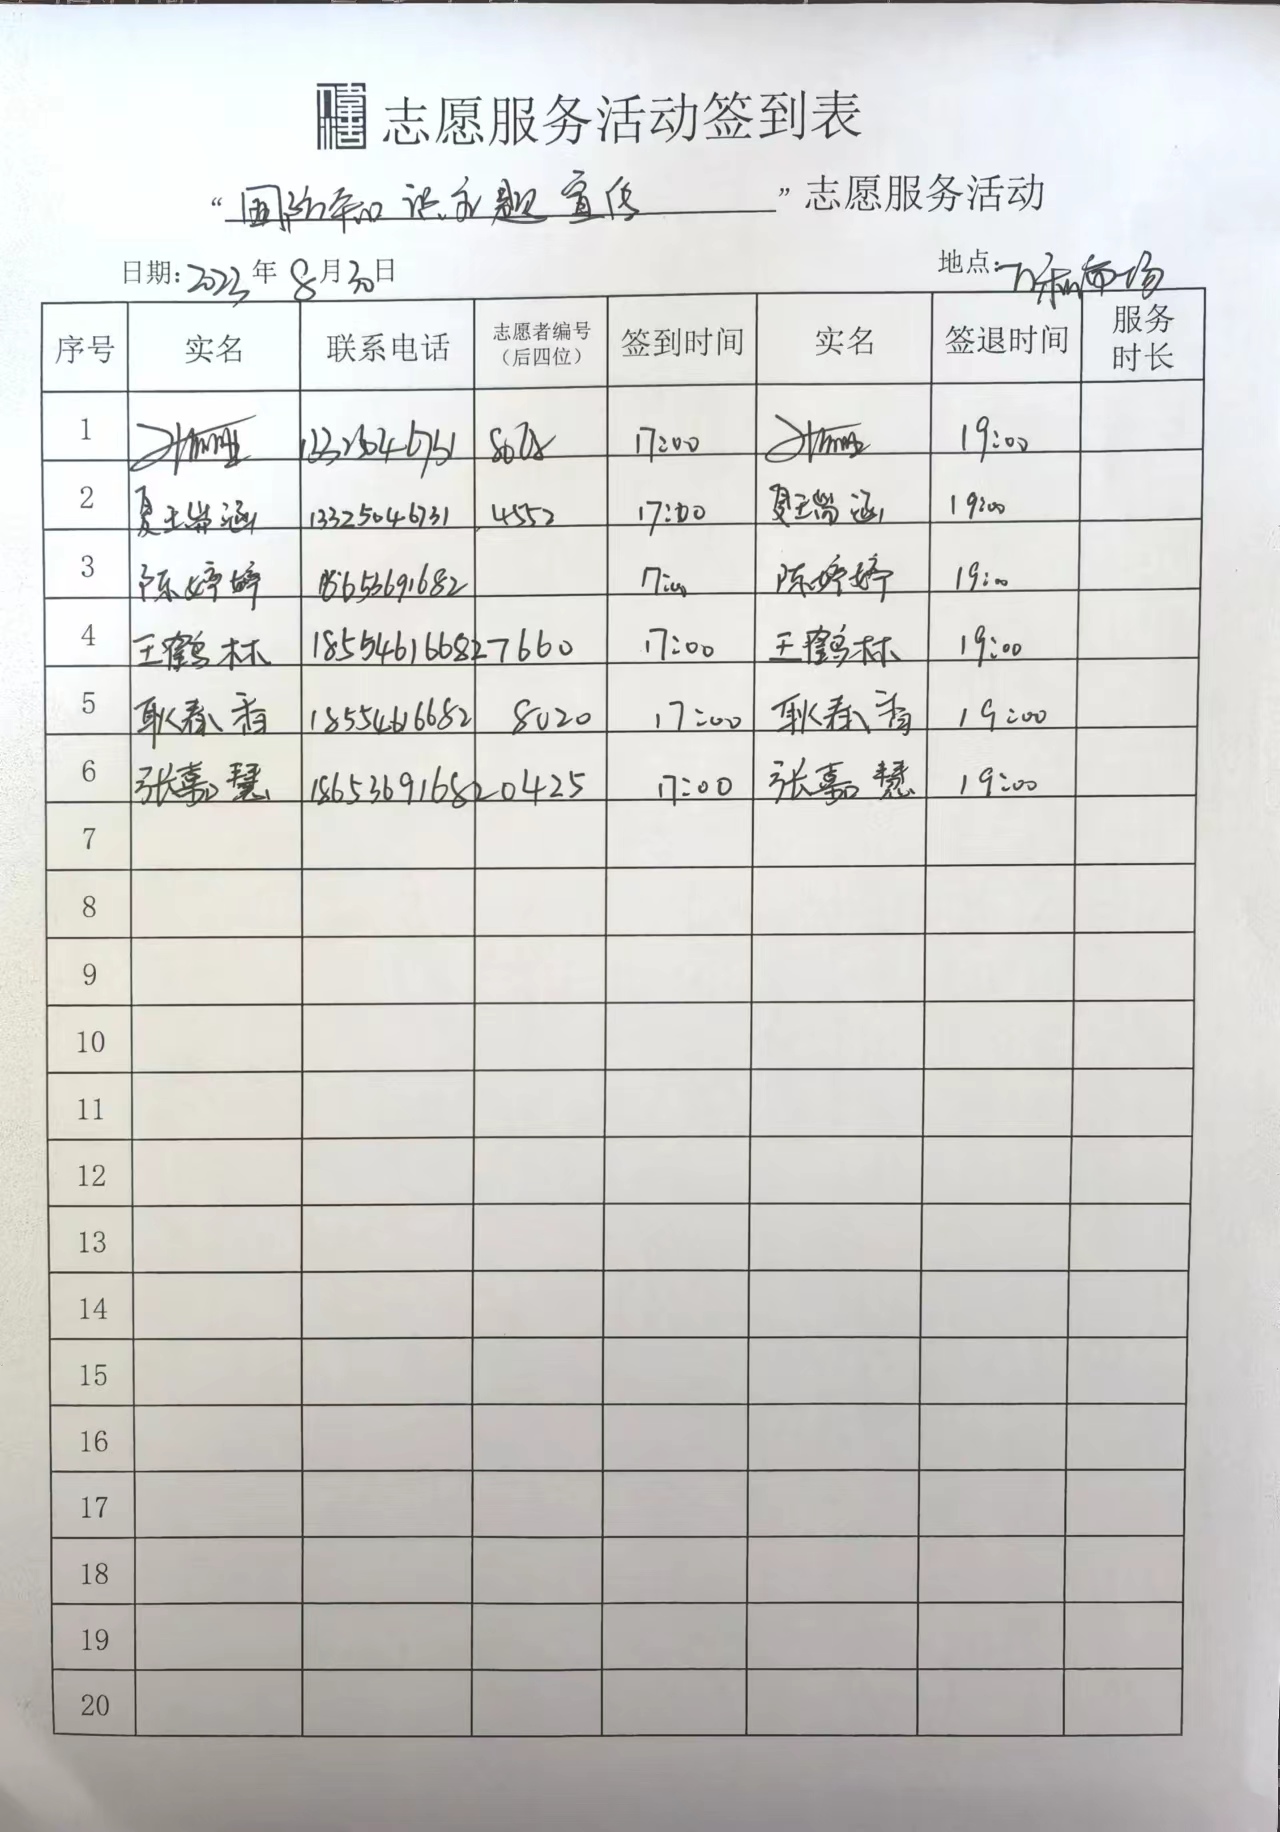 志愿服务活动签到表
“国防知识主题宣传”志愿服务活动
日期:2023年8月30日 地点:
序号 实名 联系电话 志愿者编号（后四位） 签到时间 实名 签退时间 服务时长
1 8078 17:00 19:00
2 夏王尚涵 13325046731 4552 17:00 夏王尚涵 19:00
3 陈婷婷 18653691682 17:00 陈婷婷 19:00
4 王鹤林 18554616682 7660 17:00 王鹤林 19:00
5 耿春香 18554616682 8020 17:00 耿春香 19:00
6 张嘉慧 18653691682 0425 17:00 张嘉慧 19:00
7
8
9
10
11
12
13
14
15
16
17
18
19
20